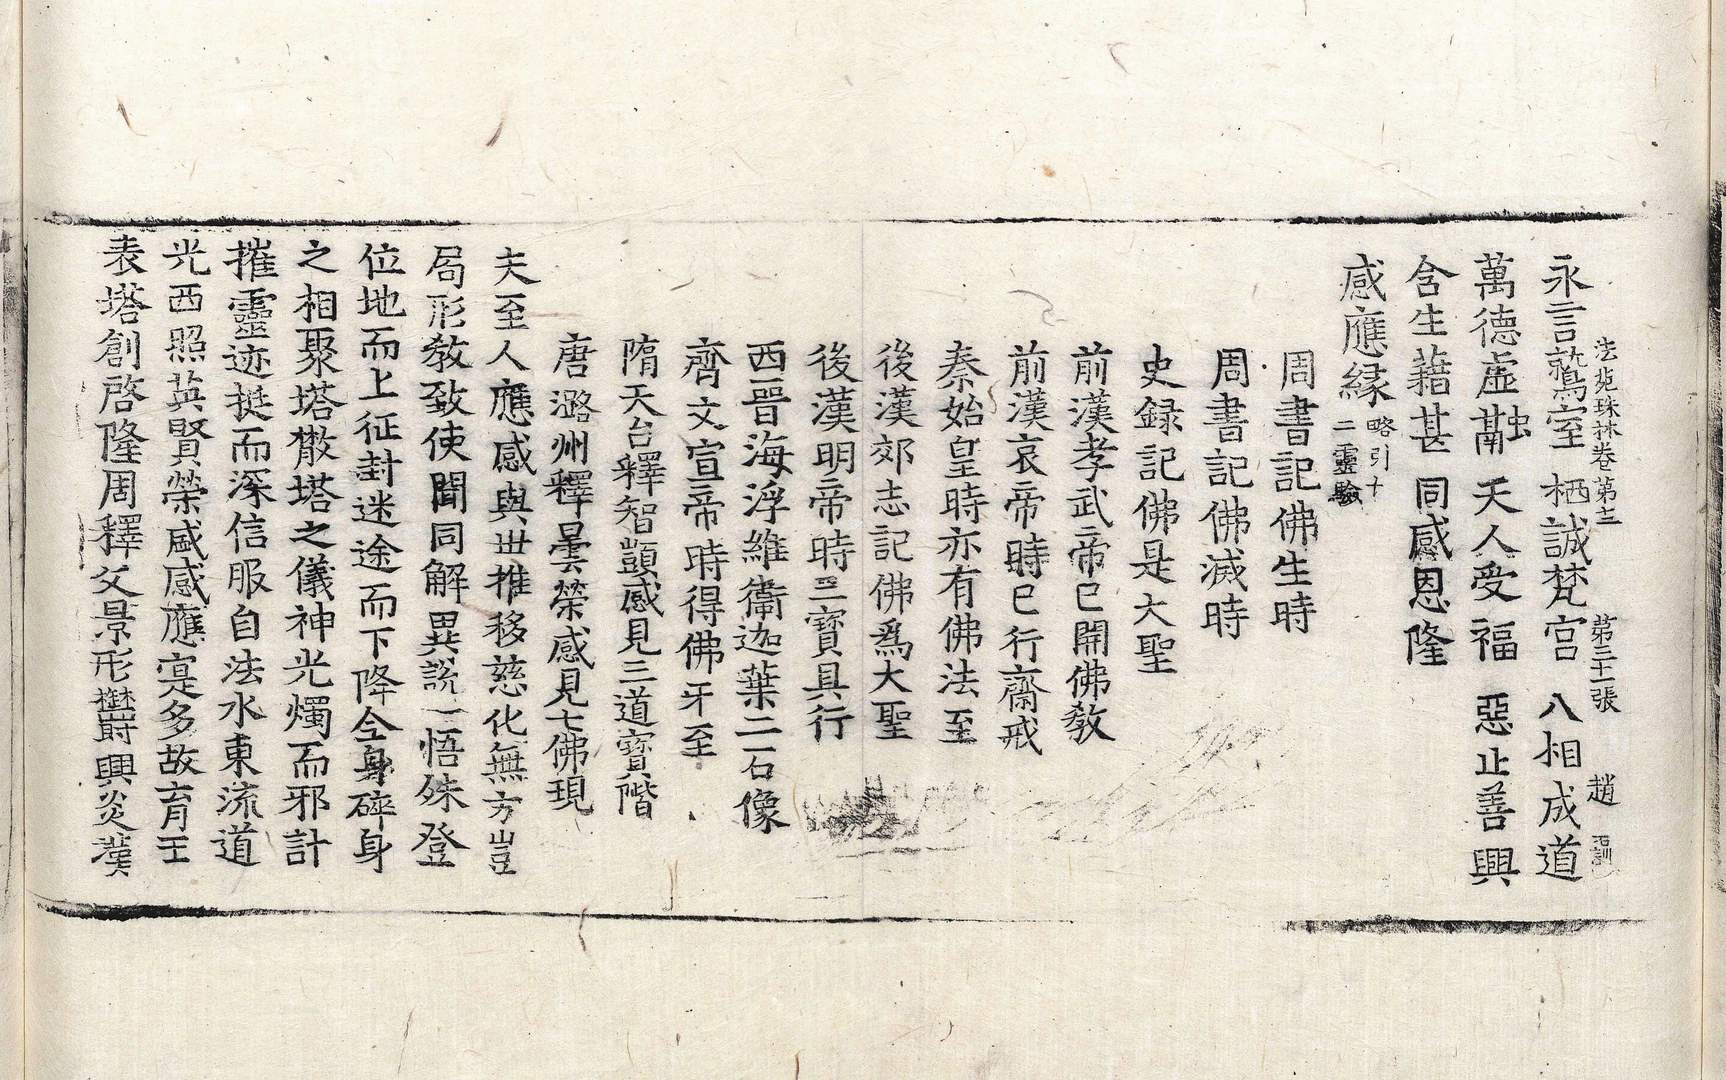 法苑珠林卷第十二　第三十一張　趙
永言鷲室　栖誠梵宮　八相成道
萬德虛融　天人受福　惡止善興
含生藉甚　同感恩隆
感應緣略引十二靈驗
周書記佛生時
周書記佛滅時
史錄記佛是大聖
前漢孝武帝已開佛教
前漢哀帝時已行齋戒
秦始皇時亦有佛法至
後漢郊志記佛爲大聖
後漢明帝時三寶具行
西晉海浮維衞迦葉二石像
齊文宣帝時得佛牙至
隋天台釋智顗感見三道寶階
唐潞州釋曇榮感見七佛現
夫至人應感與世推移慈化無方豈
局形教致使聞同解異說一悟殊登
位地而上征封迷途而下降全身碎身
之相聚塔散塔之儀神光燭而邪計
摧靈迹挺而深信服自法水東流道
光西照英賢榮盛感應寔多故育王
表塔創啓隆周釋父景形欝興炎漢